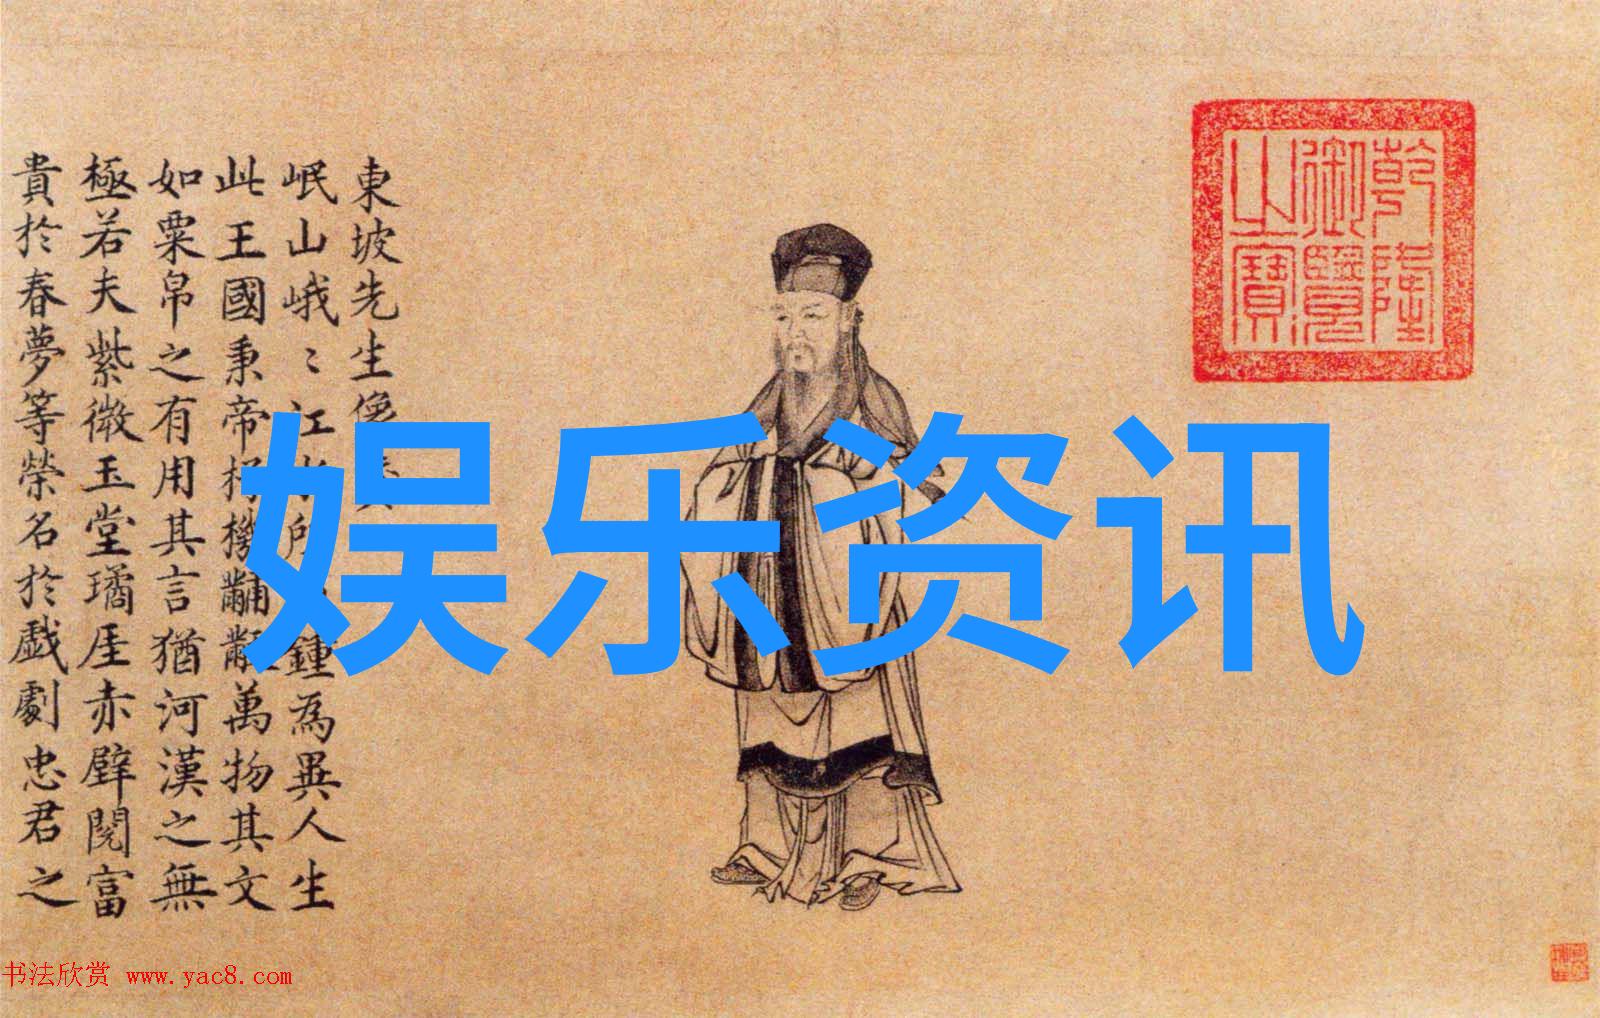 乾隆
御覽
之寶
東坡先生像
岷山峨〻江水所鍾為異人生
此王國秉帝杼機黼黻萬物其文
如粟帛之有用其言猶河漢之無
極若夫紫微玉堂璚厓赤壁閱富
貴於春夢等榮名於戲劇忠君之
娱乐资讯
书法欣赏 www.yac8.com